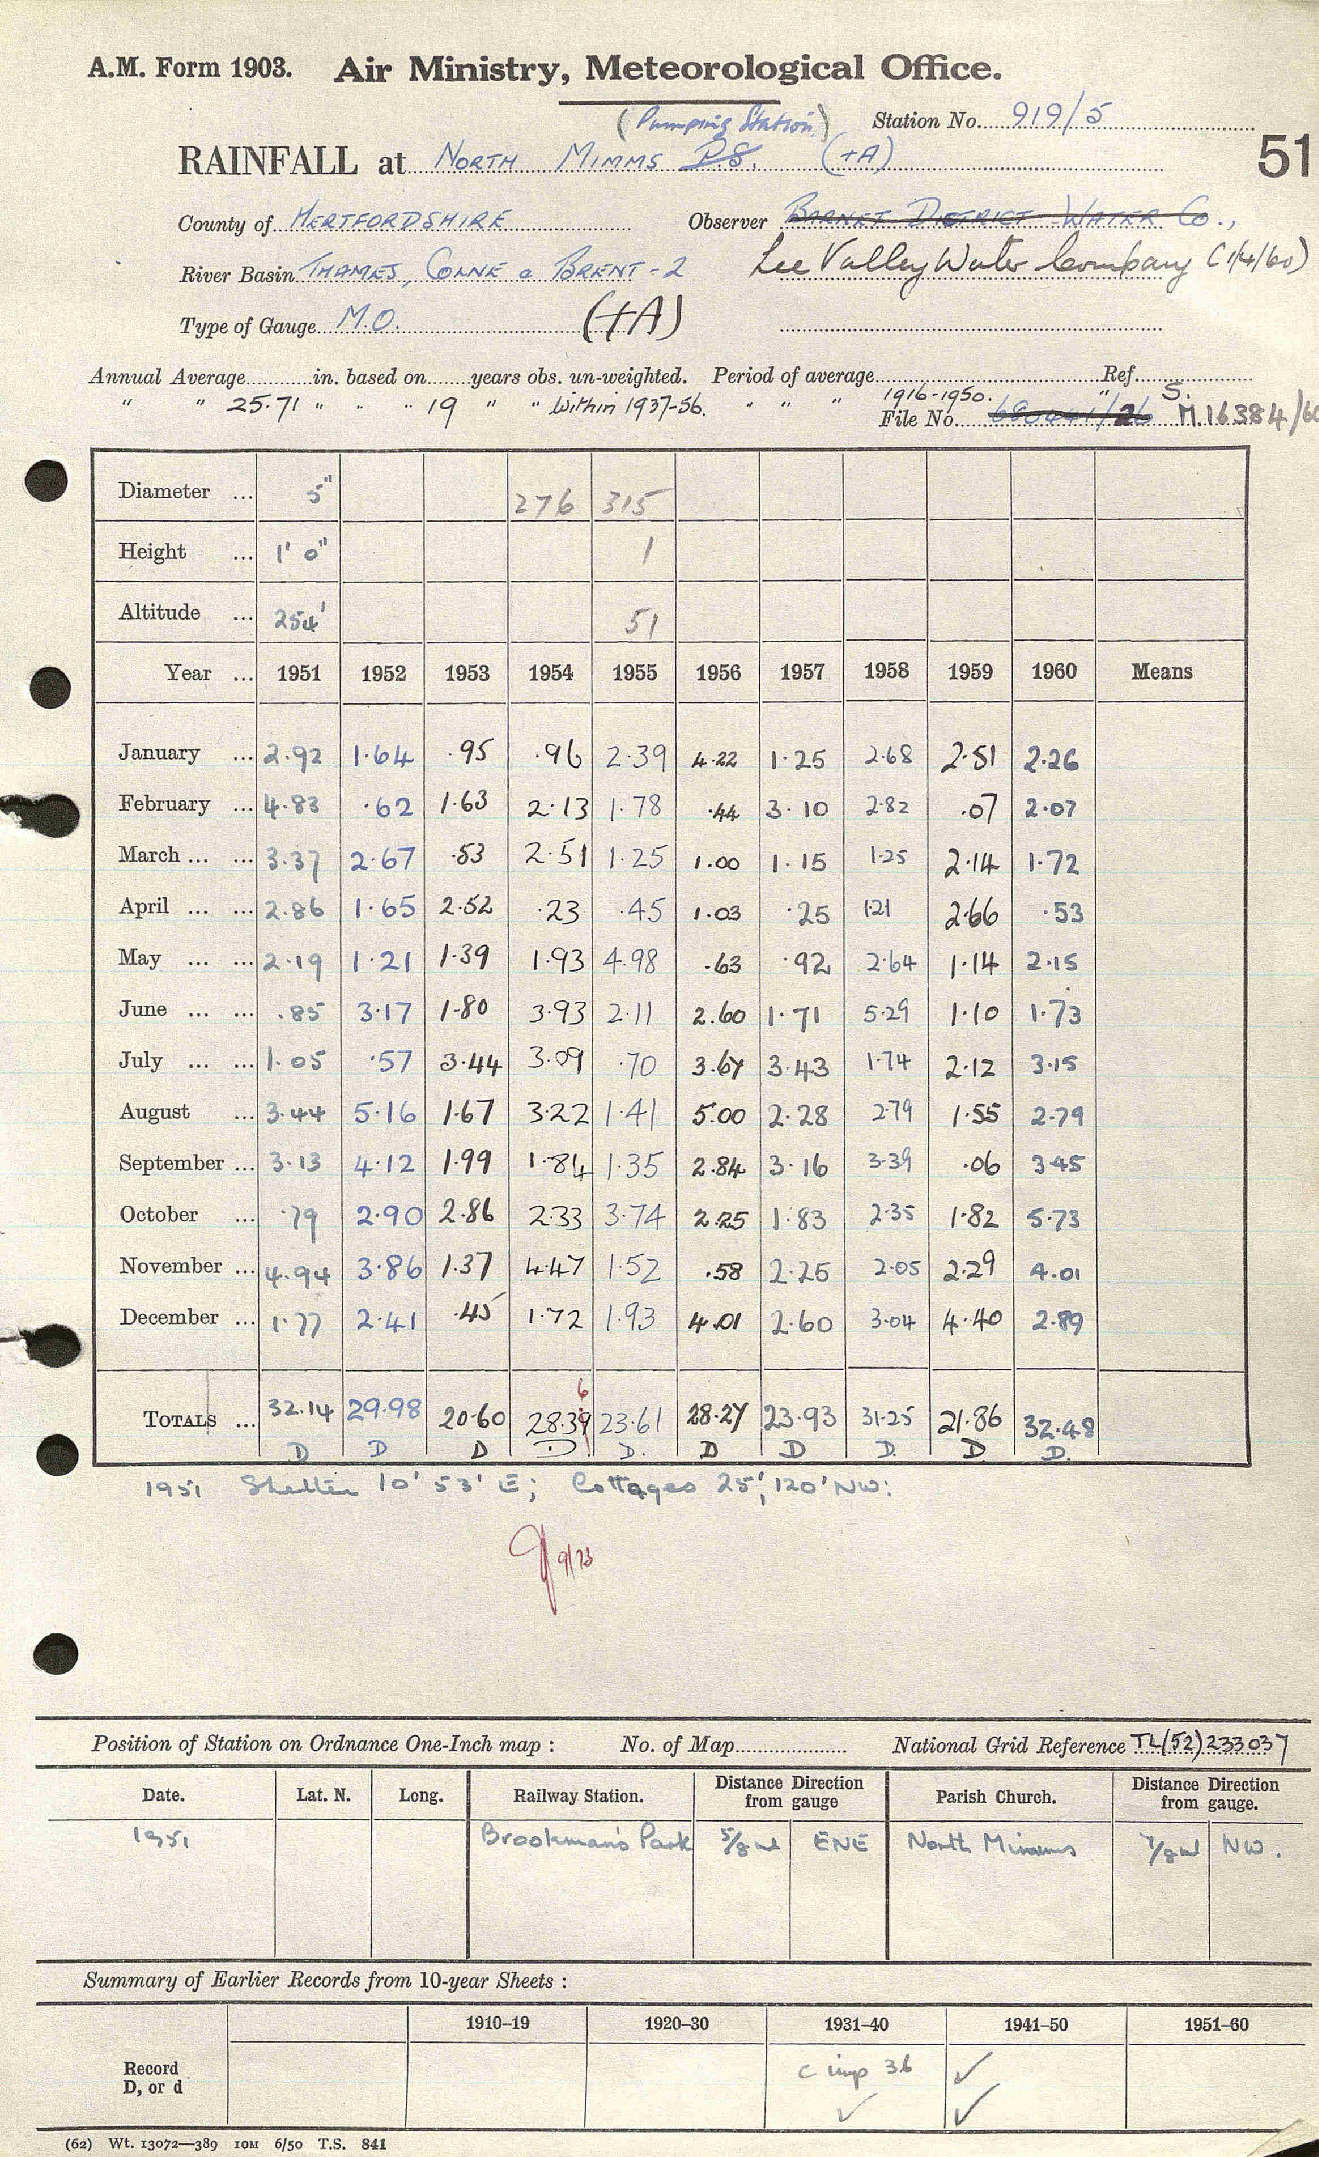 A.M. Form 1903. Air Ministry, Meteorological Office.
(Pumping Station) Station No. 919/5
RAINFALL at NORTH MIMMS P.S. (+A) 51
County of HERTFORDSHIRE Observer BARNET DISTRICT WATER Co.,
River Basin THAMES, COLNE & BRENT - 2 Lee Valley Water Company (1/4/60)
Type of Gauge M.O. (+A)
Annual Average in. based on years obs. un-weighted. Period of average Ref.
" " 25.71 " " " 19 " " Within 1937-56. " " " 1916-1950. " S.
File No. 680441/26 M.16384/60
Diameter ... 5" 276 315
Height ... 1' 0" 1
Altitude ... 254' 51
Year ... 1951 1952 1953 1954 1955 1956 1957 1958 1959 1960 Means
January ... 2.92 1.64 .95 .96 2.39 4.22 1.25 2.68 2.51 2.26
February ... 4.83 .62 1.63 2.13 1.78 .44 3.10 2.82 .07 2.07
March ... ... 3.37 2.67 .53 2.51 1.25 1.00 1.15 1.25 2.14 1.72
April ... ... 2.86 1.65 2.52 .23 .45 1.03 .25 1.21 2.66 .53
May ... ... 2.19 1.21 1.39 1.93 4.98 .63 .92 2.64 1.14 2.15
June ... ... .85 3.17 1.80 3.93 2.11 2.60 1.71 5.29 1.10 1.73
July ... ... 1.05 .57 3.44 3.09 .70 3.67 3.43 1.74 2.12 3.15
August ... 3.44 5.16 1.67 3.22 1.41 5.00 2.28 2.79 1.55 2.79
September ... 3.13 4.12 1.99 1.84 1.35 2.84 3.16 3.39 .06 3.45
October ... .79 2.90 2.86 2.33 3.74 2.25 1.83 2.35 1.82 5.73
November ... 4.94 3.86 1.37 4.47 1.52 .58 2.25 2.05 2.29 4.01
December ... 1.77 2.41 .45 1.72 1.93 4.01 2.60 3.04 4.40 2.89
6
TOTALS ... 32.14 29.98 20.60 28.39 23.61 28.27 23.93 31.25 21.86 32.48
D D D D D. D D D. D D.
1951 Shelter 10' 53' E; Cottages 25', 120' NW:
9/73
Position of Station on Ordnance One-Inch map : No. of Map National Grid Reference TL(52)233037
Date. Lat. N. Long. Railway Station. Distance from gauge Direction Parish Church. Distance from gauge. Direction
1951 Brookman's Park 5/8 ml ENE North Mimms 7/8 ml NW.
Summary of Earlier Records from 10-year Sheets :
1910–19 1920–30 1931–40 1941–50 1951–60
Record D, or d c imp 36 ✓
✓ ✓
(62) Wt. 13072—389 10M 6/50 T.S. 841